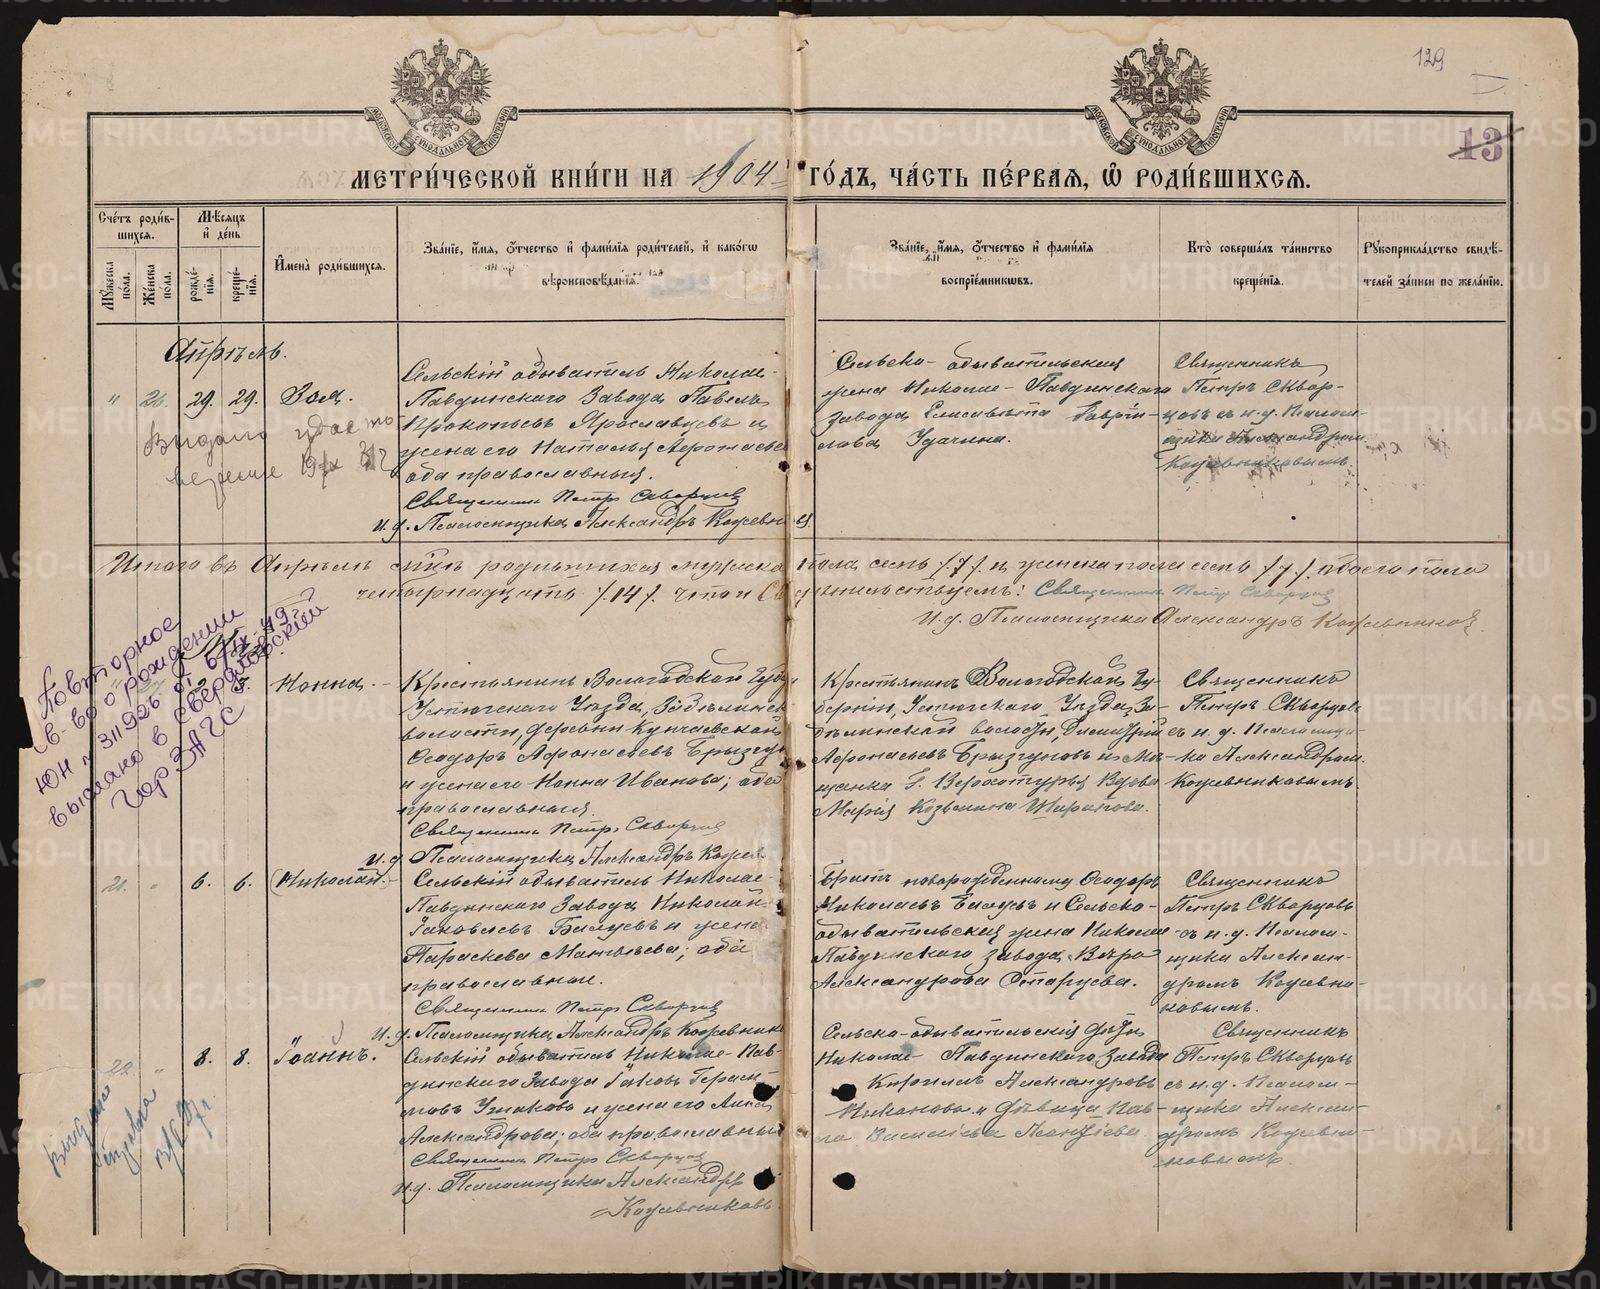 129
13
МЕТРИ́ЧЕСКОЙ КНИ́ГИ НА 1904 ГО́ДЪ, ЧА́СТЬ ПЕ́РВАЯ, Ѡ РОДИ́ВШИХСЯ.
Сче́тъ роди́вшихся.
Мꙋ́жеска по́ла.
Же́нска по́ла.
Мѣ́сяцъ и́ де́нь
рожде́нїя.
креще́нїя.
И҆мена̀ роди́вшихся.
Зва́нїе, и҆́мя, ѻ҆́тчество и҆ фами́лїя роди́телей, и҆ како́гѡ
вѣроисповѣ́данїя.
Зва́нїе, и҆́мя, ѻ҆́тчество и҆ фами́лїя
воспрїе́мникѡвъ.
Кто̀ соверша́лъ та́инство
креще́нїя.
Рꙋкоприкла́дство свидѣ́-
телей за́писи по жела́нїю.
Апрѣль.
29. 29. Зоя.
Сельскій обыватель Николае-
Павдинскаго Завода Павелъ
Прокопьевъ Ярославцевъ и
жена его Наталья
оба православныя.
Священникъ Петръ Скворцовъ
и.д. Псаломщика Александръ Кожевник
Сельско-обывательская
жена Николае-Павдинскаго
Завода Елисавета Гаврии-
лова Удачина.
Священникъ
Петръ Сквор-
цовъ съ и.д. Псалом-
щика Александром
Кожевниковымъ.
Выдано
Итого въ Апрѣлѣ м-цѣ родившихся мужска пола семь /7/ и женска пола семь /7/. обоего пола
четырнадцать /14/. что и свидѣтельствуемъ: Священникъ Петръ Скворцовъ
И.д. Псаломщика Александръ Кожевниковъ.
Повторное
св-во о рождении
ЮН № 311926 от
выслано в Свердловский
гор ЗАГС
2 Нонна.
Крестьянинъ Вологодской Губер
Устюгского Уѣзда,
волости, деревни
Ѳеодоръ Афонасьевъ Брызгун
и жена его Нонна Иванова; оба
православныя.
Священникъ Петръ Скворцовъ
и.д. Псаломщика Александръ Кожев
Крестьянинъ Вологодской Гу-
берніи, Устюгскаго Уѣзда, За-
волости, Дмитрій
Афонасьевъ Брызгуновъ и Мѣ-
щанка Г. Верхотурья Вдова
Марія Козьмина Шарапова.
Священникъ
Петръ Скворцовъ
съ и.д. Псаломщи-
ка Александром
Кожевниковымъ.
21. " 6. 6. Николай.
Сельскій обыватель Николае-
Павдинского Завода Николай
Яковлевъ и жена
Параскева Матвѣева; оба
православные.
Священникъ Петръ Скворцовъ
и.д. Псаломщика Александръ Кожевник
Братъ новорожденному Ѳеодоръ
Николаевъ и Сельско-
обывательская жена Николае-
Павдинскаго завода Вѣра
Александрова Старцева.
Священникъ
Петръ Скворцовъ
съ и.д. Псалом-
щика Алексан-
дромъ Кожевни-
ковымъ.
22. " 8. 8. Іоаннъ.
Сельскій обыватель Николае-Пав-
динскаго Завода Яковъ Герасі-
мовъ Ушаковъ и жена его Анна
Александрова; оба православныя
Священникъ Петръ Скворцовъ
и.д. Псаломщика Александръ
Кожевниковъ
Сельско-обывательскія дѣти
Николае-Павдинскаго Завода
Кириллъ Александровъ
и дѣвица Пав-
ла Василіева
Священникъ
Петръ Скворцовъ
съ и.д. Псалом-
щика Алексан-
дромъ Кожевни-
ковымъ.
METRIKI.GASO-URAL.RU